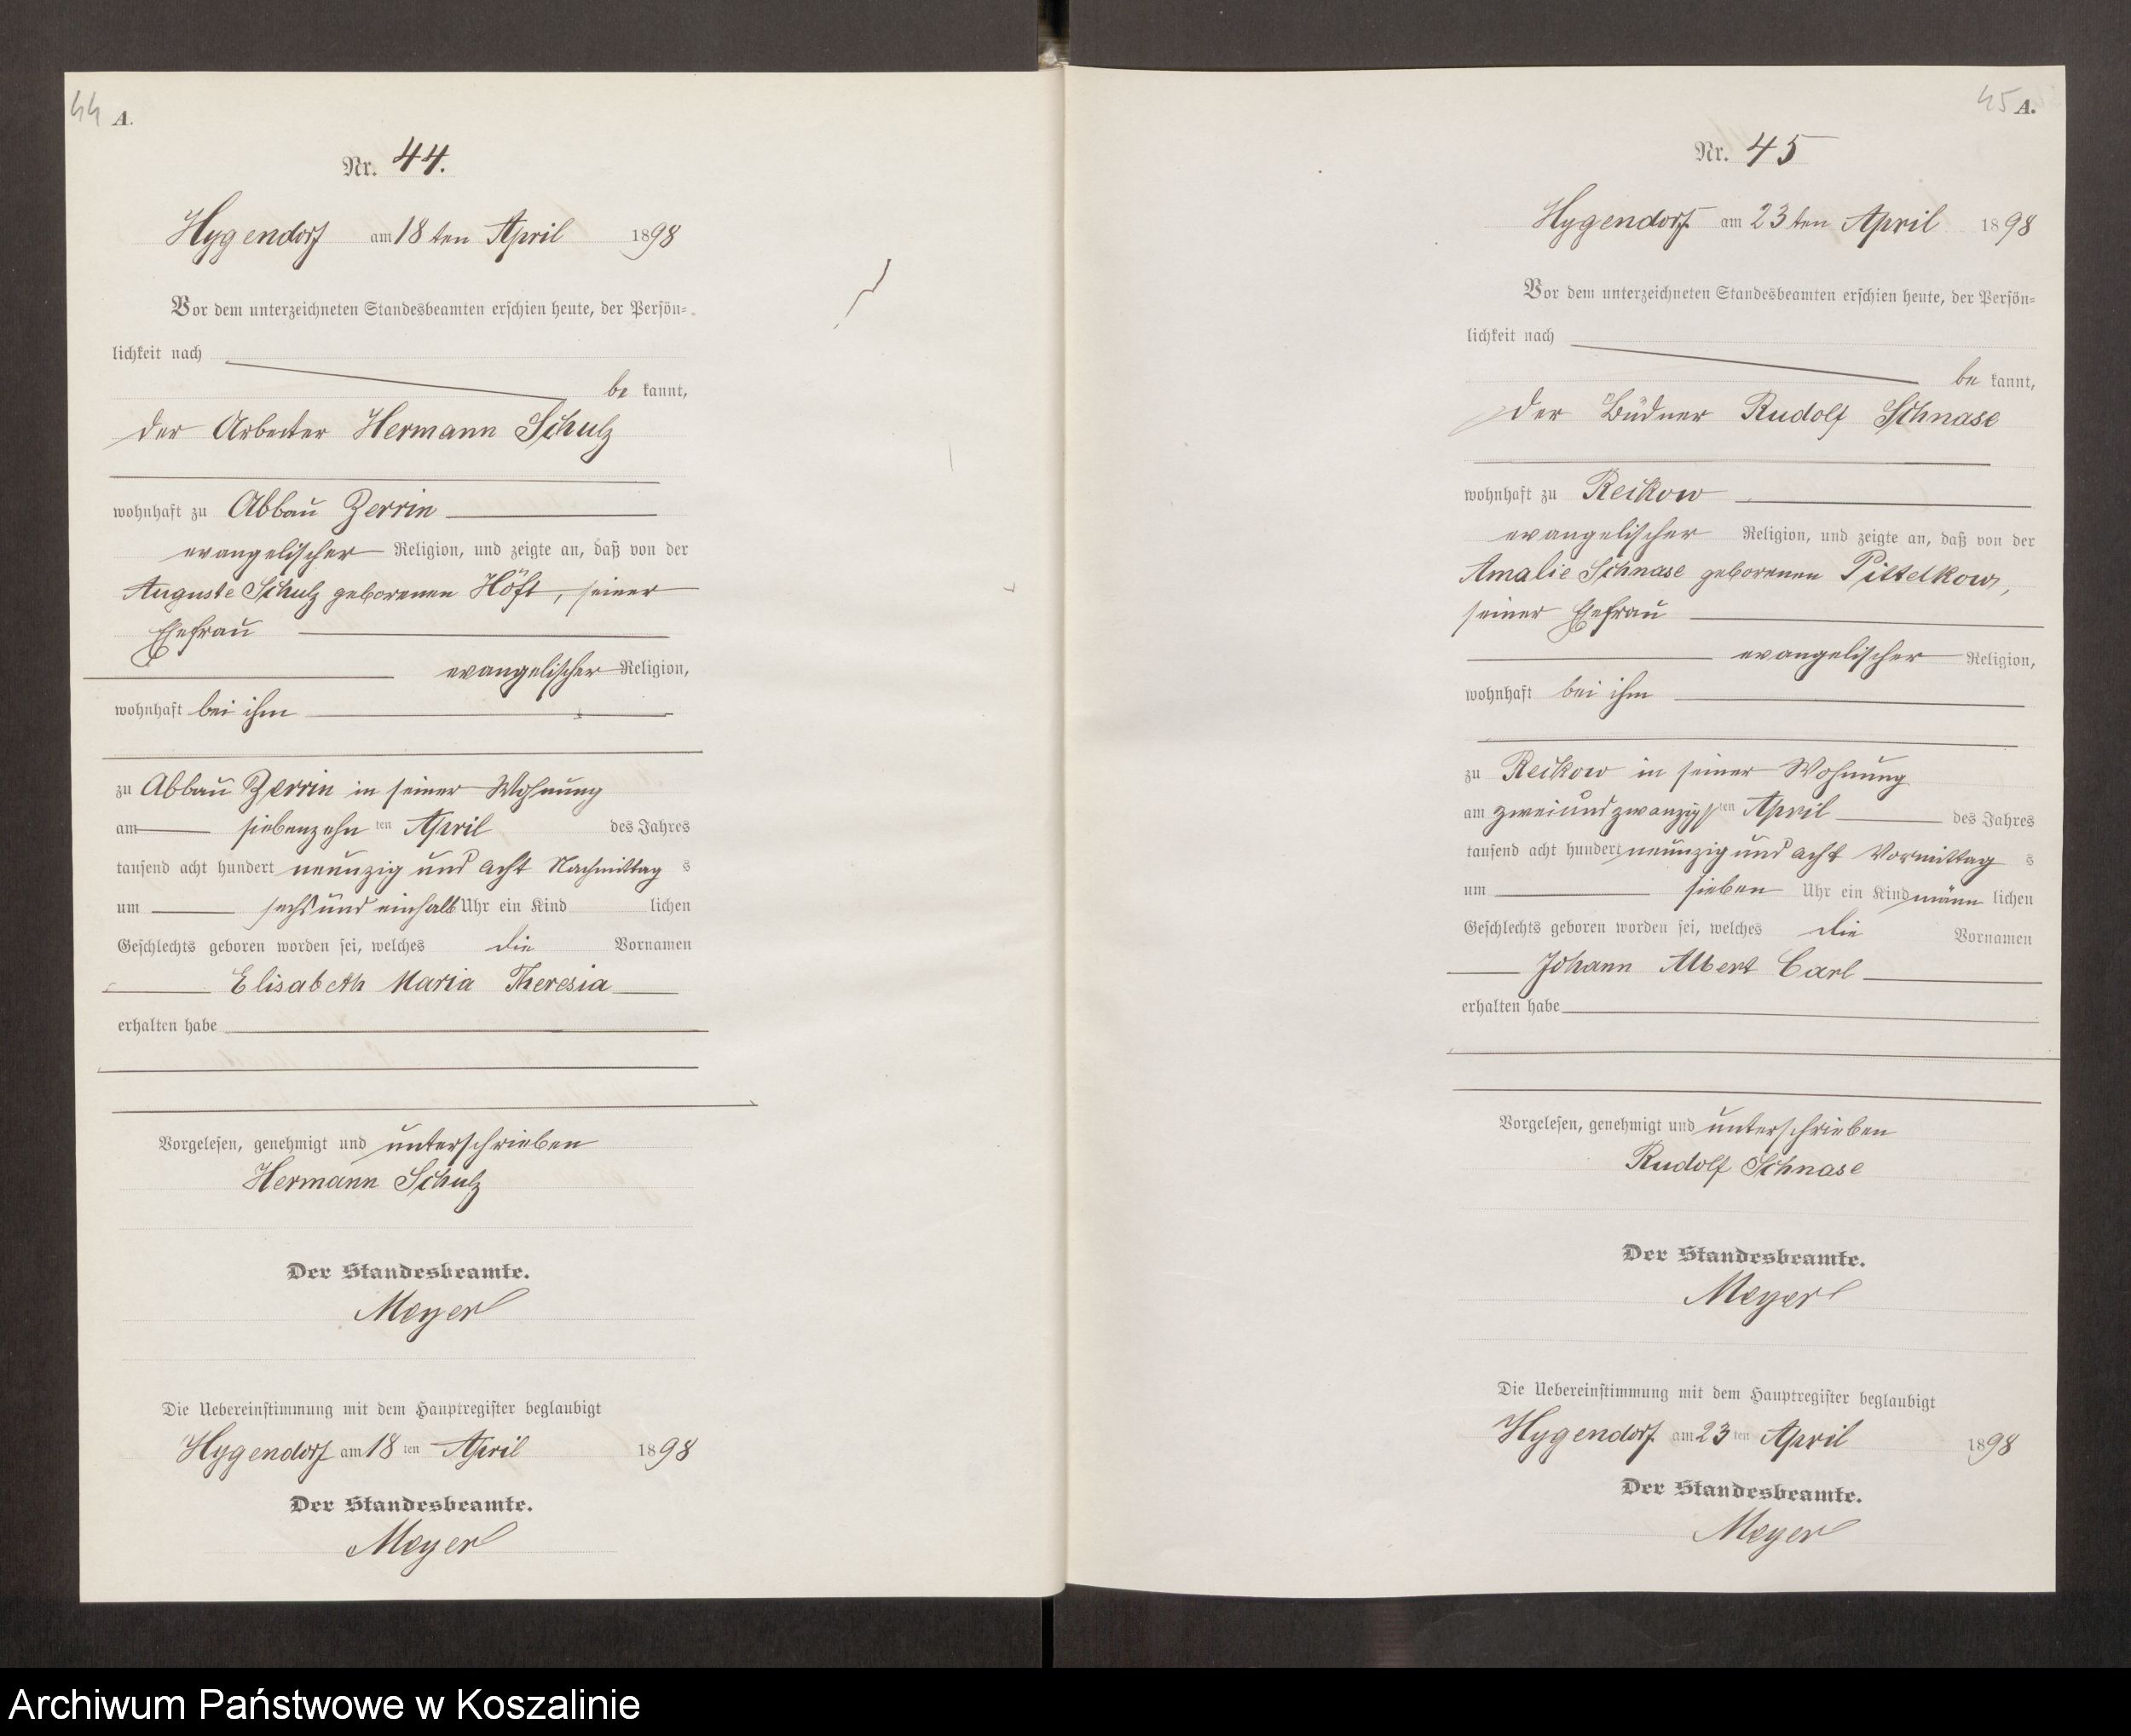 44 A.
Nr. 44.
Hygendorf am 18ten April 1898
Vor dem unterzeichneten Standesbeamten erschien heute, der Persön-
lichkeit nach
be kannt,
der Arbeiter Hermann Schulz
wohnhaft zu Abbau Zerrin
evangelischer Religion, und zeigte an, daß von der
Auguste Schulz geborenen Höft, seiner
Ehefrau
evangelischer Religion,
wohnhaft bei ihm
zu Abbau Zerrin in seiner Wohnung
am siebenzehn ten April des Jahres
tausend acht hundert neunzig und acht Nachmittag s
um sechs und einhalb Uhr ein Kind lichen
Geschlechts geboren worden sei, welches die Vornamen
Elisabeth Maria Theresia
erhalten habe
Vorgelesen, genehmigt und unterschrieben
Hermann Schulz
Der Standesbeamte.
Meyer
Die Uebereinstimmung mit dem Hauptregister beglaubigt
Hygendorf am 18 ten April 1898
Der Standesbeamte.
Meyer
45 A.
Nr. 45
Hygendorf am 23ten April 1898
Vor dem unterzeichneten Standesbeamten erschien heute, der Persön-
lichkeit nach
be kannt,
der Büdner Rudolf Schnase
wohnhaft zu Reikow
evangelischer Religion, und zeigte an, daß von der
Amalie Schnase geborenen Pittelkow,
seiner Ehefrau
evangelischer Religion,
wohnhaft bei ihm
zu Reikow in seiner Wohnung
am zweiundzwanzigsten April des Jahres
tausend acht hundert neunzig und acht Vormittag s
um sieben Uhr ein Kind männ lichen
Geschlechts geboren worden sei, welches die Vornamen
Johann Albert Carl
erhalten habe
Vorgelesen, genehmigt und unterschrieben
Rudolf Schnase
Der Standesbeamte.
Meyer
Die Uebereinstimmung mit dem Hauptregister beglaubigt
Hygendorf am 23 ten April 1898
Der Standesbeamte.
Meyer
Archiwum Państwowe w Koszalinie